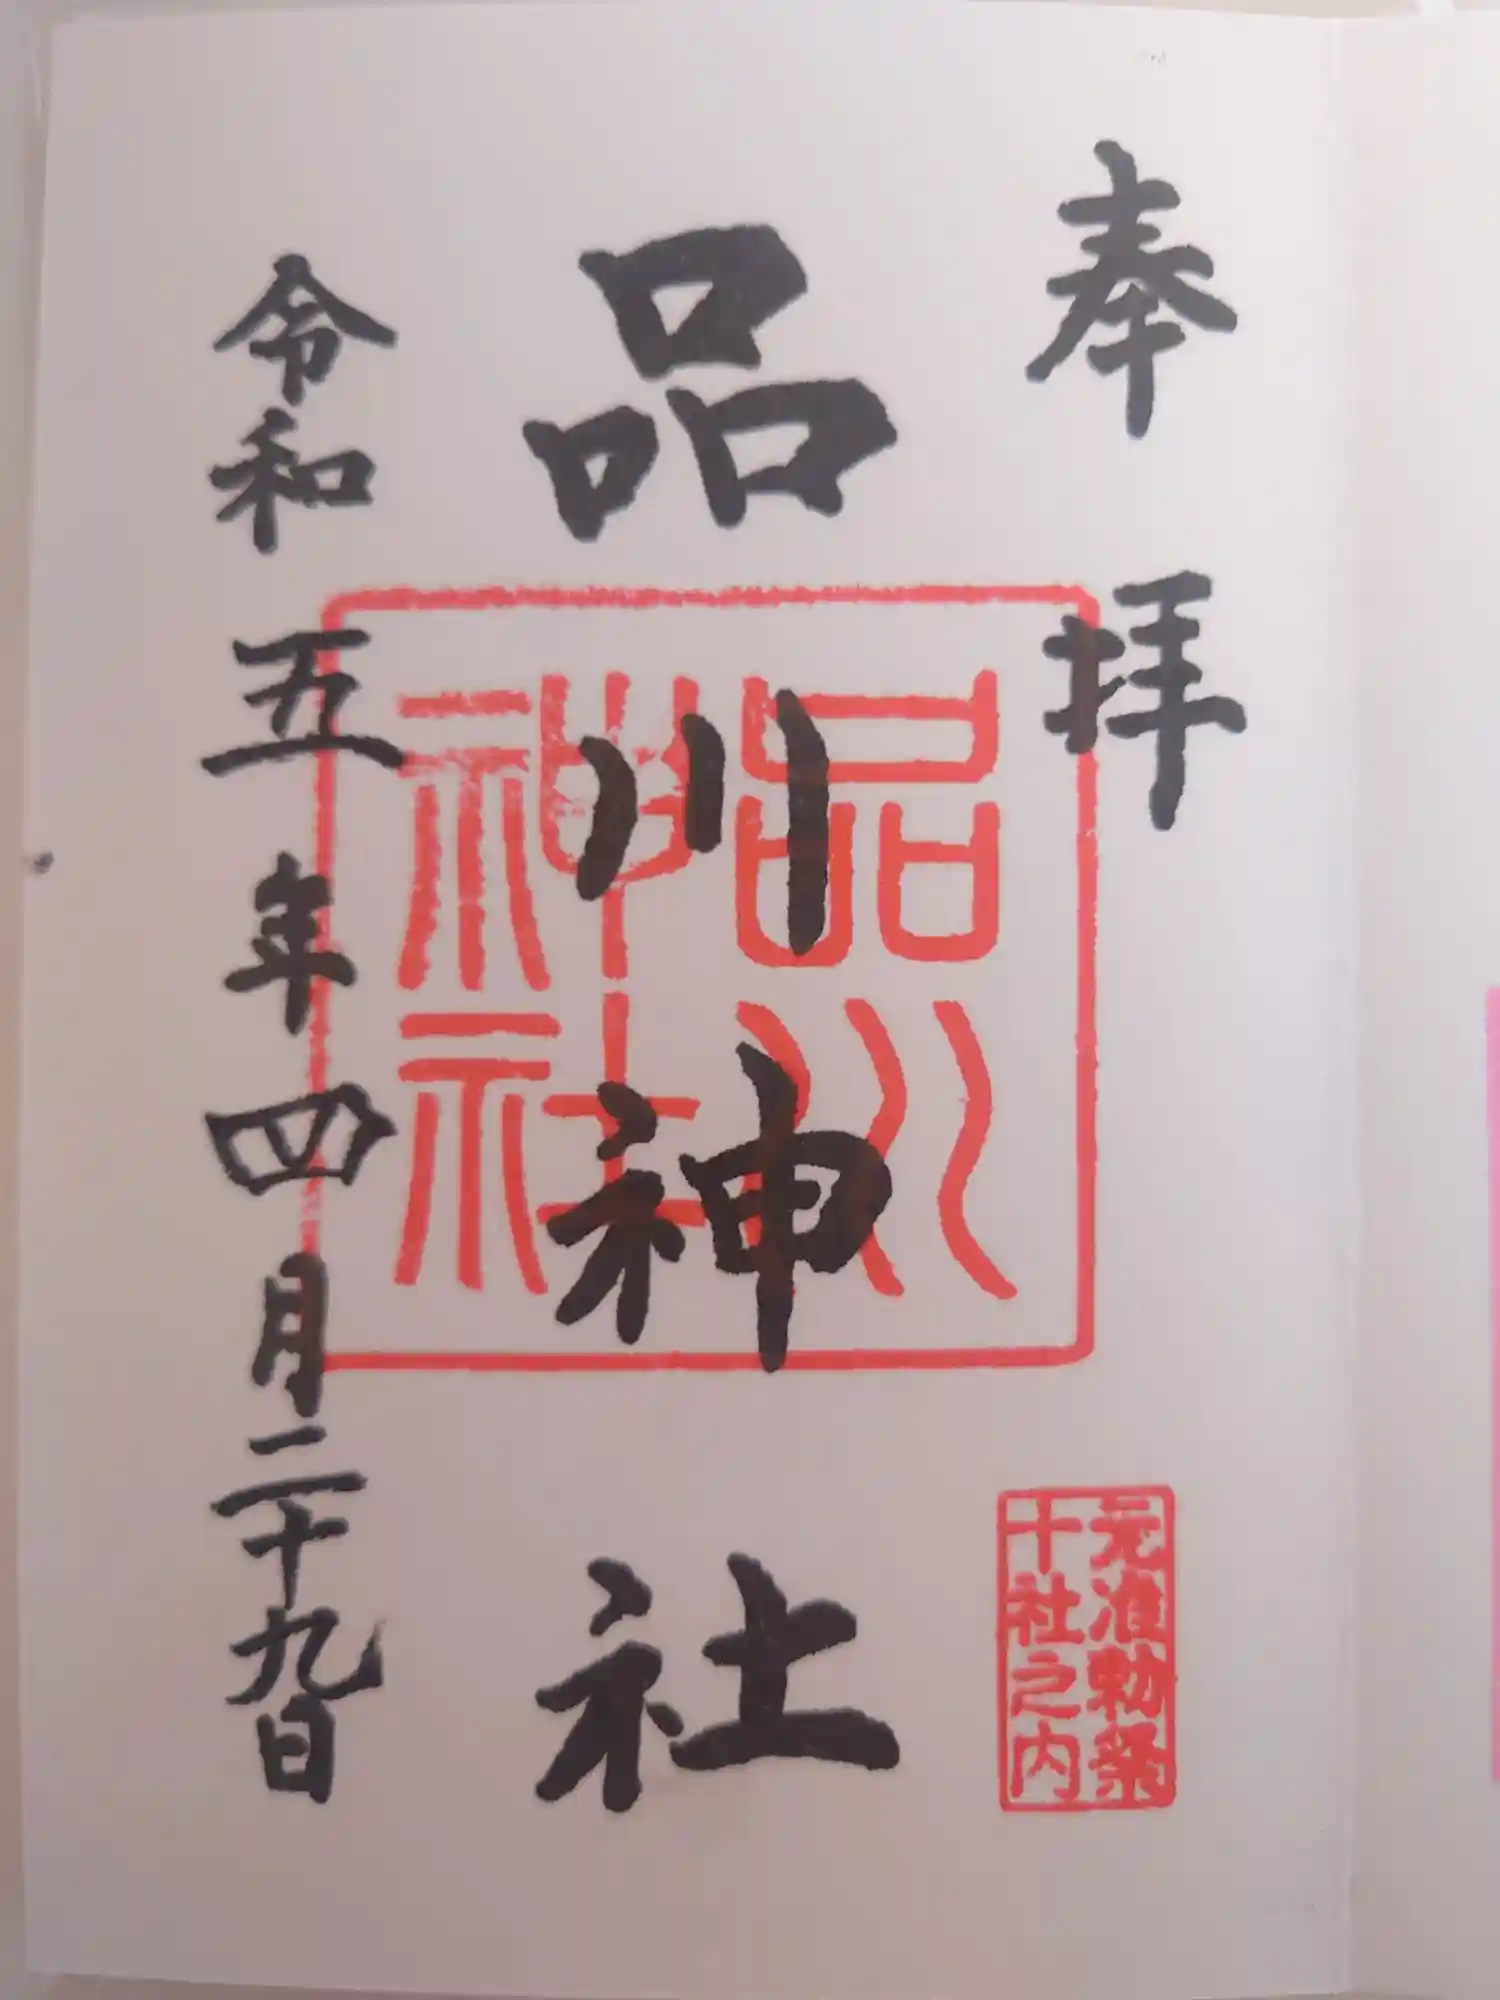 奉拝
品川神社
品川
神社
元准勅祭
十社之内
令和五年四月二十九日